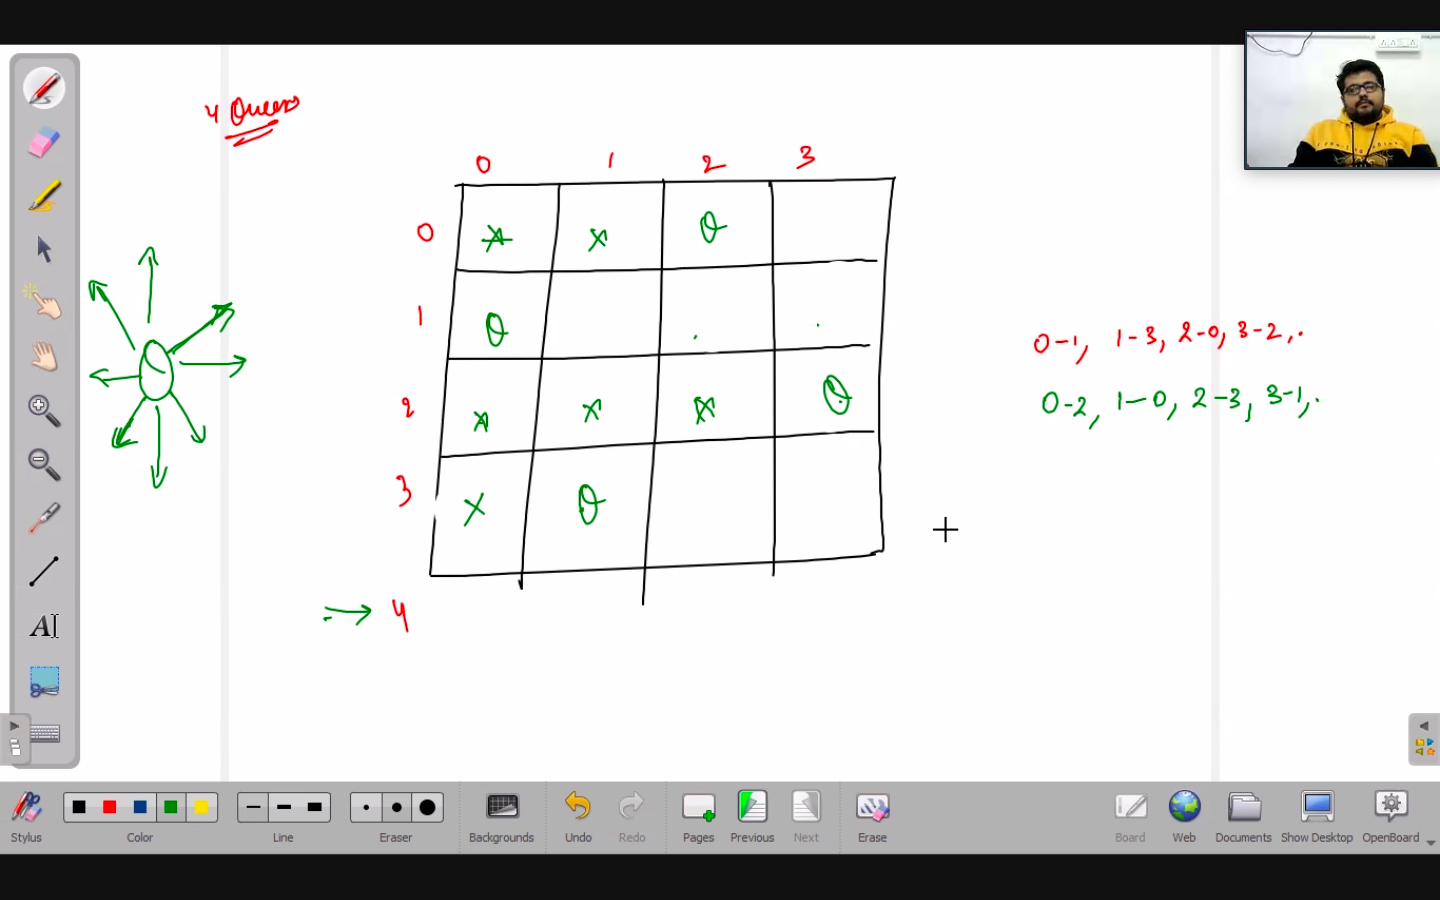 4 Queens
0 1 2 3
0 x x Q
1 Q
2 x x x Q
3 x Q
4
0-1, 1-3, 2-0, 3-2,.
0-2, 1-0, 2-3, 3-1,.
Stylus Color Line Eraser Backgrounds Undo Redo Pages Previous Next Erase Board Web Documents Show Desktop OpenBoard